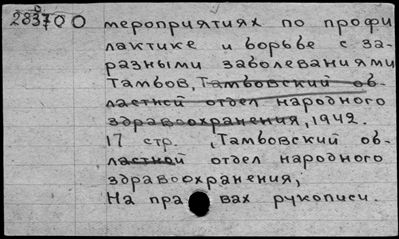 283700
мероприятиях по профи
лактике и борьбе с за-
разными заболеваниями
Тамбов, Тамбовский об-
ластной отдел народного
здравоохранения, 1942.
17 стр. (Тамбовский об-
ластной отдел народного
здравоохранения,
На правах рукописи.